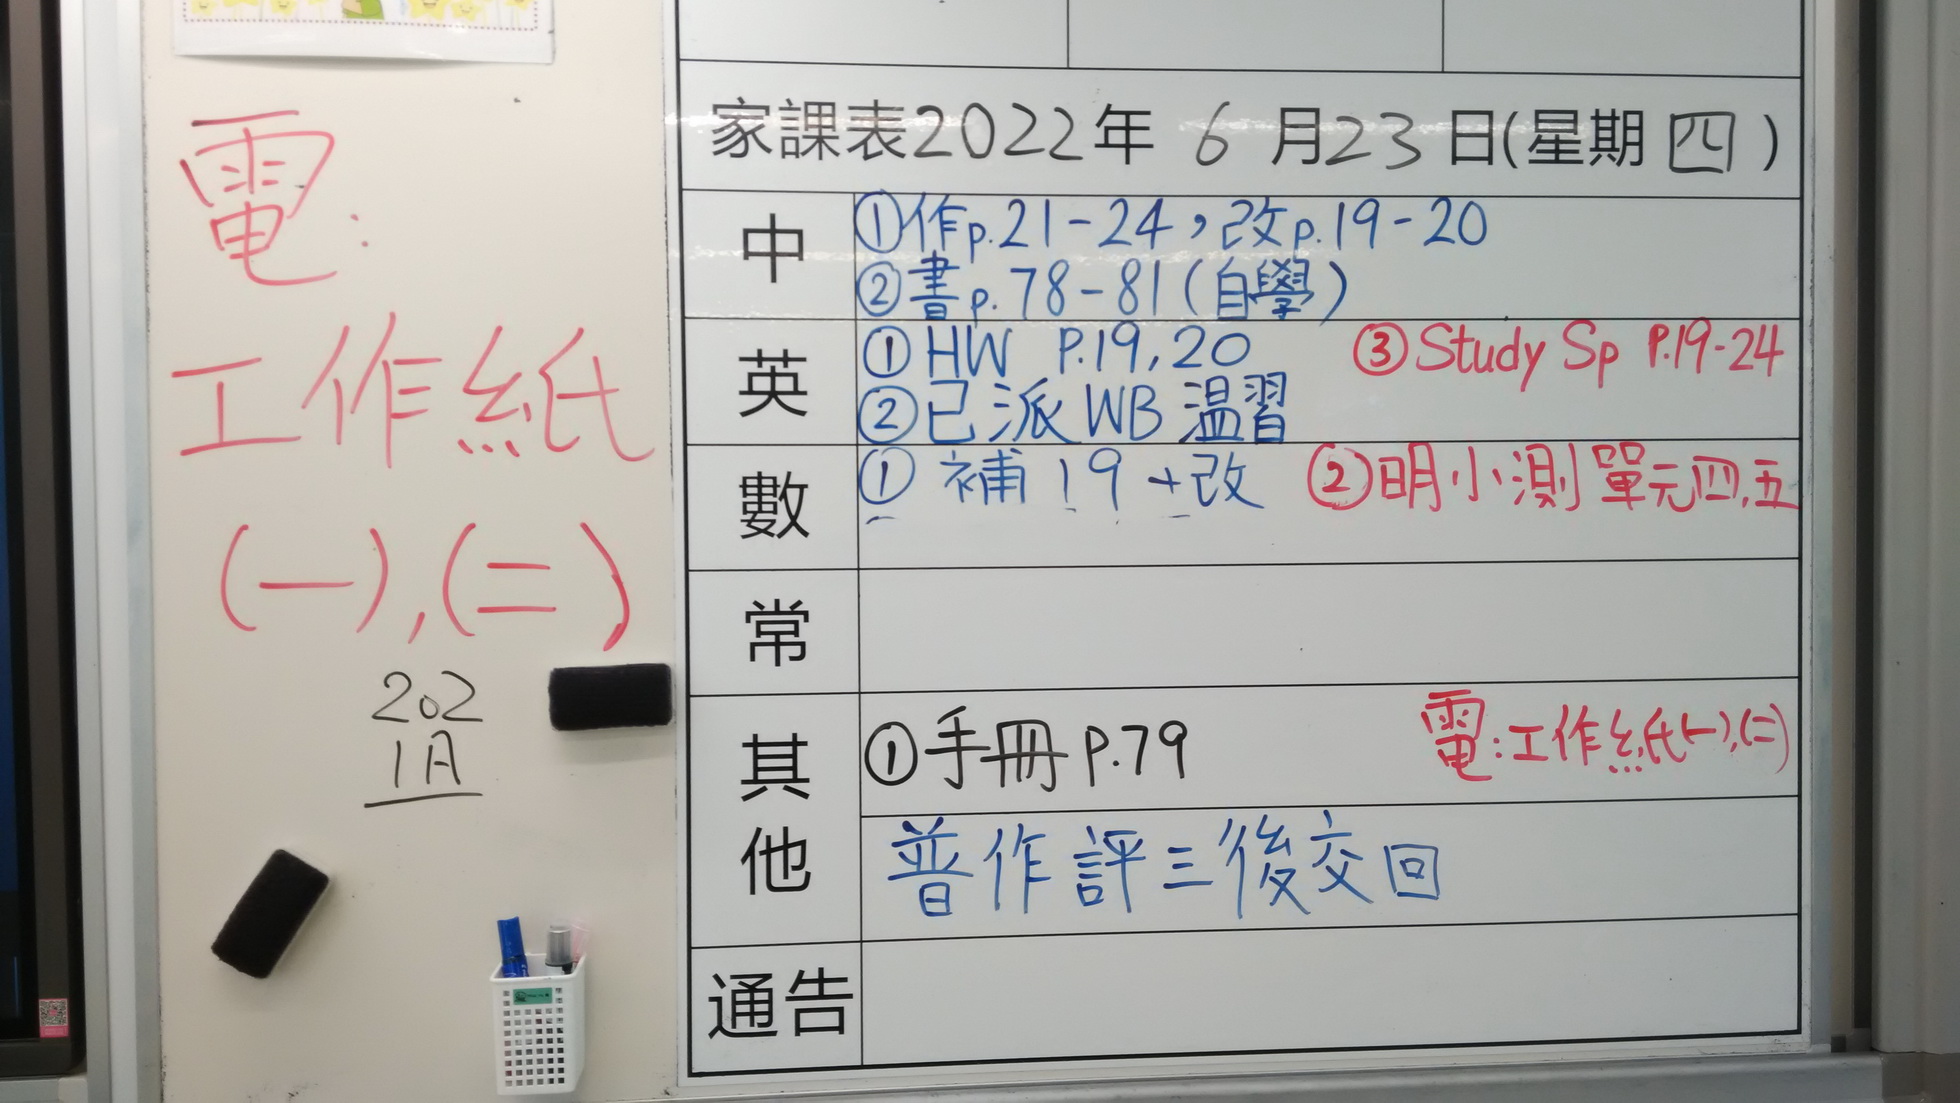 電:
工作紙
(一),(二)
202
1A
家課表2022年 6 月23日(星期 四 )
中
①作p.21-24，改p.19-20
②書p.78-81(自學)
英
①HW P.19,20 ③Study Sp P.19-24
②已派WB溫習
數
① 補19+改 ②明小測單元四,五
常
其他
①手冊P.79 電:工作紙(一),(二)
普作評三後交回
通告